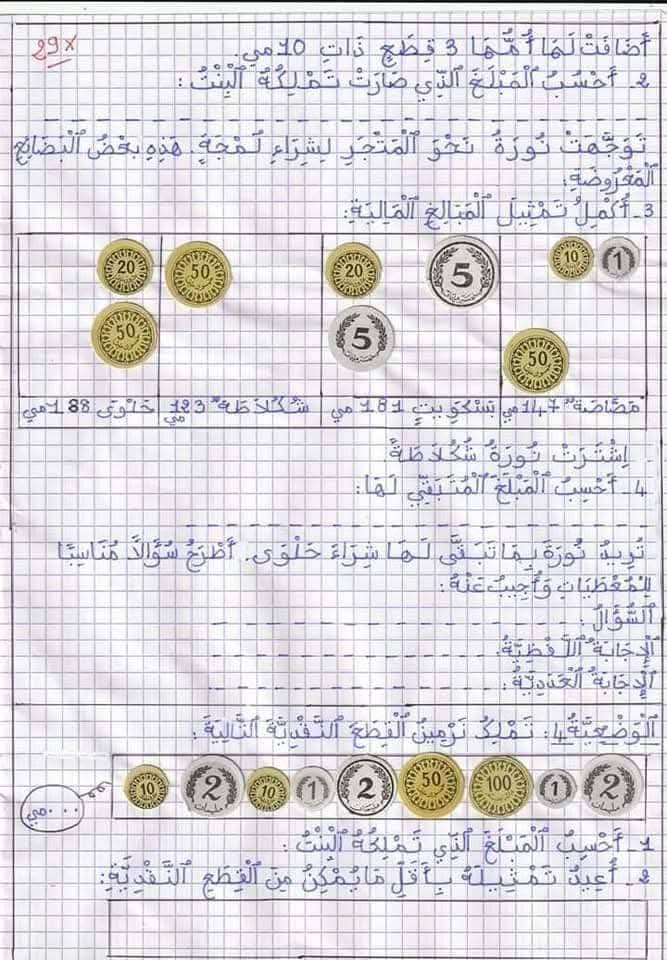 29x
أَضَافَتْ لَهَا أُمُّهَا 3 قِطَعٍ ذَاتِ 10 مي.
2- أَحْسُبُ ٱلْمَبْلَغَ ٱلَّذِي صَارَتْ تَمْلِكُهُ ٱلْبِنْتُ :
تَوَجَّهَتْ نُورَةُ نَحْوَ ٱلْمَتْجَرِ لِشِرَاءِ لُمْجَةٍ. هَذِهِ بَعْضُ ٱلْبَضَائِعِ
ٱلْمَعْرُوضَةِ:
3- أُكْمِلُ تَمْثِيلَ ٱلْمَبَالِغِ ٱلْمَالِيَّةِ:
1 10 5 20 50 20
5 50 50
مَصَّاصَةٌ 147 مي بَسْكَوِيتٍ 181 مي شُكُلَاطَةٌ 123 مي حَلْوَى 188 مي
اِشْتَرَتْ نُورَةُ شُكُلَاطَةً
4- أَحْسِبُ ٱلْمَبْلَغَ ٱلْمُتَبَقِّي لَهَا:
تُرِيدُ نُورَةُ بِمَا تَبَقَّى لَهَا شِرَاءَ حَلْوَى. أَطْرَحُ سُؤَالًا مُنَاسِبًا
لِلْمُعْطَيَاتِ وَأُجِيبُ عَنْهُ:
ٱلسُّؤَالُ :
ٱلْإِجَابَةُ ٱللَّفْظِيَّةُ:
ٱلْإِجَابَةُ ٱلْعَدَدِيَّةُ:
ٱلْوَضْعِيَّةُ 4: تَمْلِكُ نَرْمِينُ ٱلْقِطَعَ ٱلنَّقْدِيَّةَ ٱلتَّالِيَةَ :
2 1 100 50 2 1 10 2 10
... مي
1- أَحْسِبُ ٱلْمَبْلَغَ ٱلَّذِي تَمْلِكُهُ ٱلْبِنْتُ :
2- أُعِيدُ تَمْثِيلَهُ بِأَقَلِّ مَا يُمْكِنُ مِنَ ٱلْقِطَعِ ٱلنَّقْدِيَّةِ: